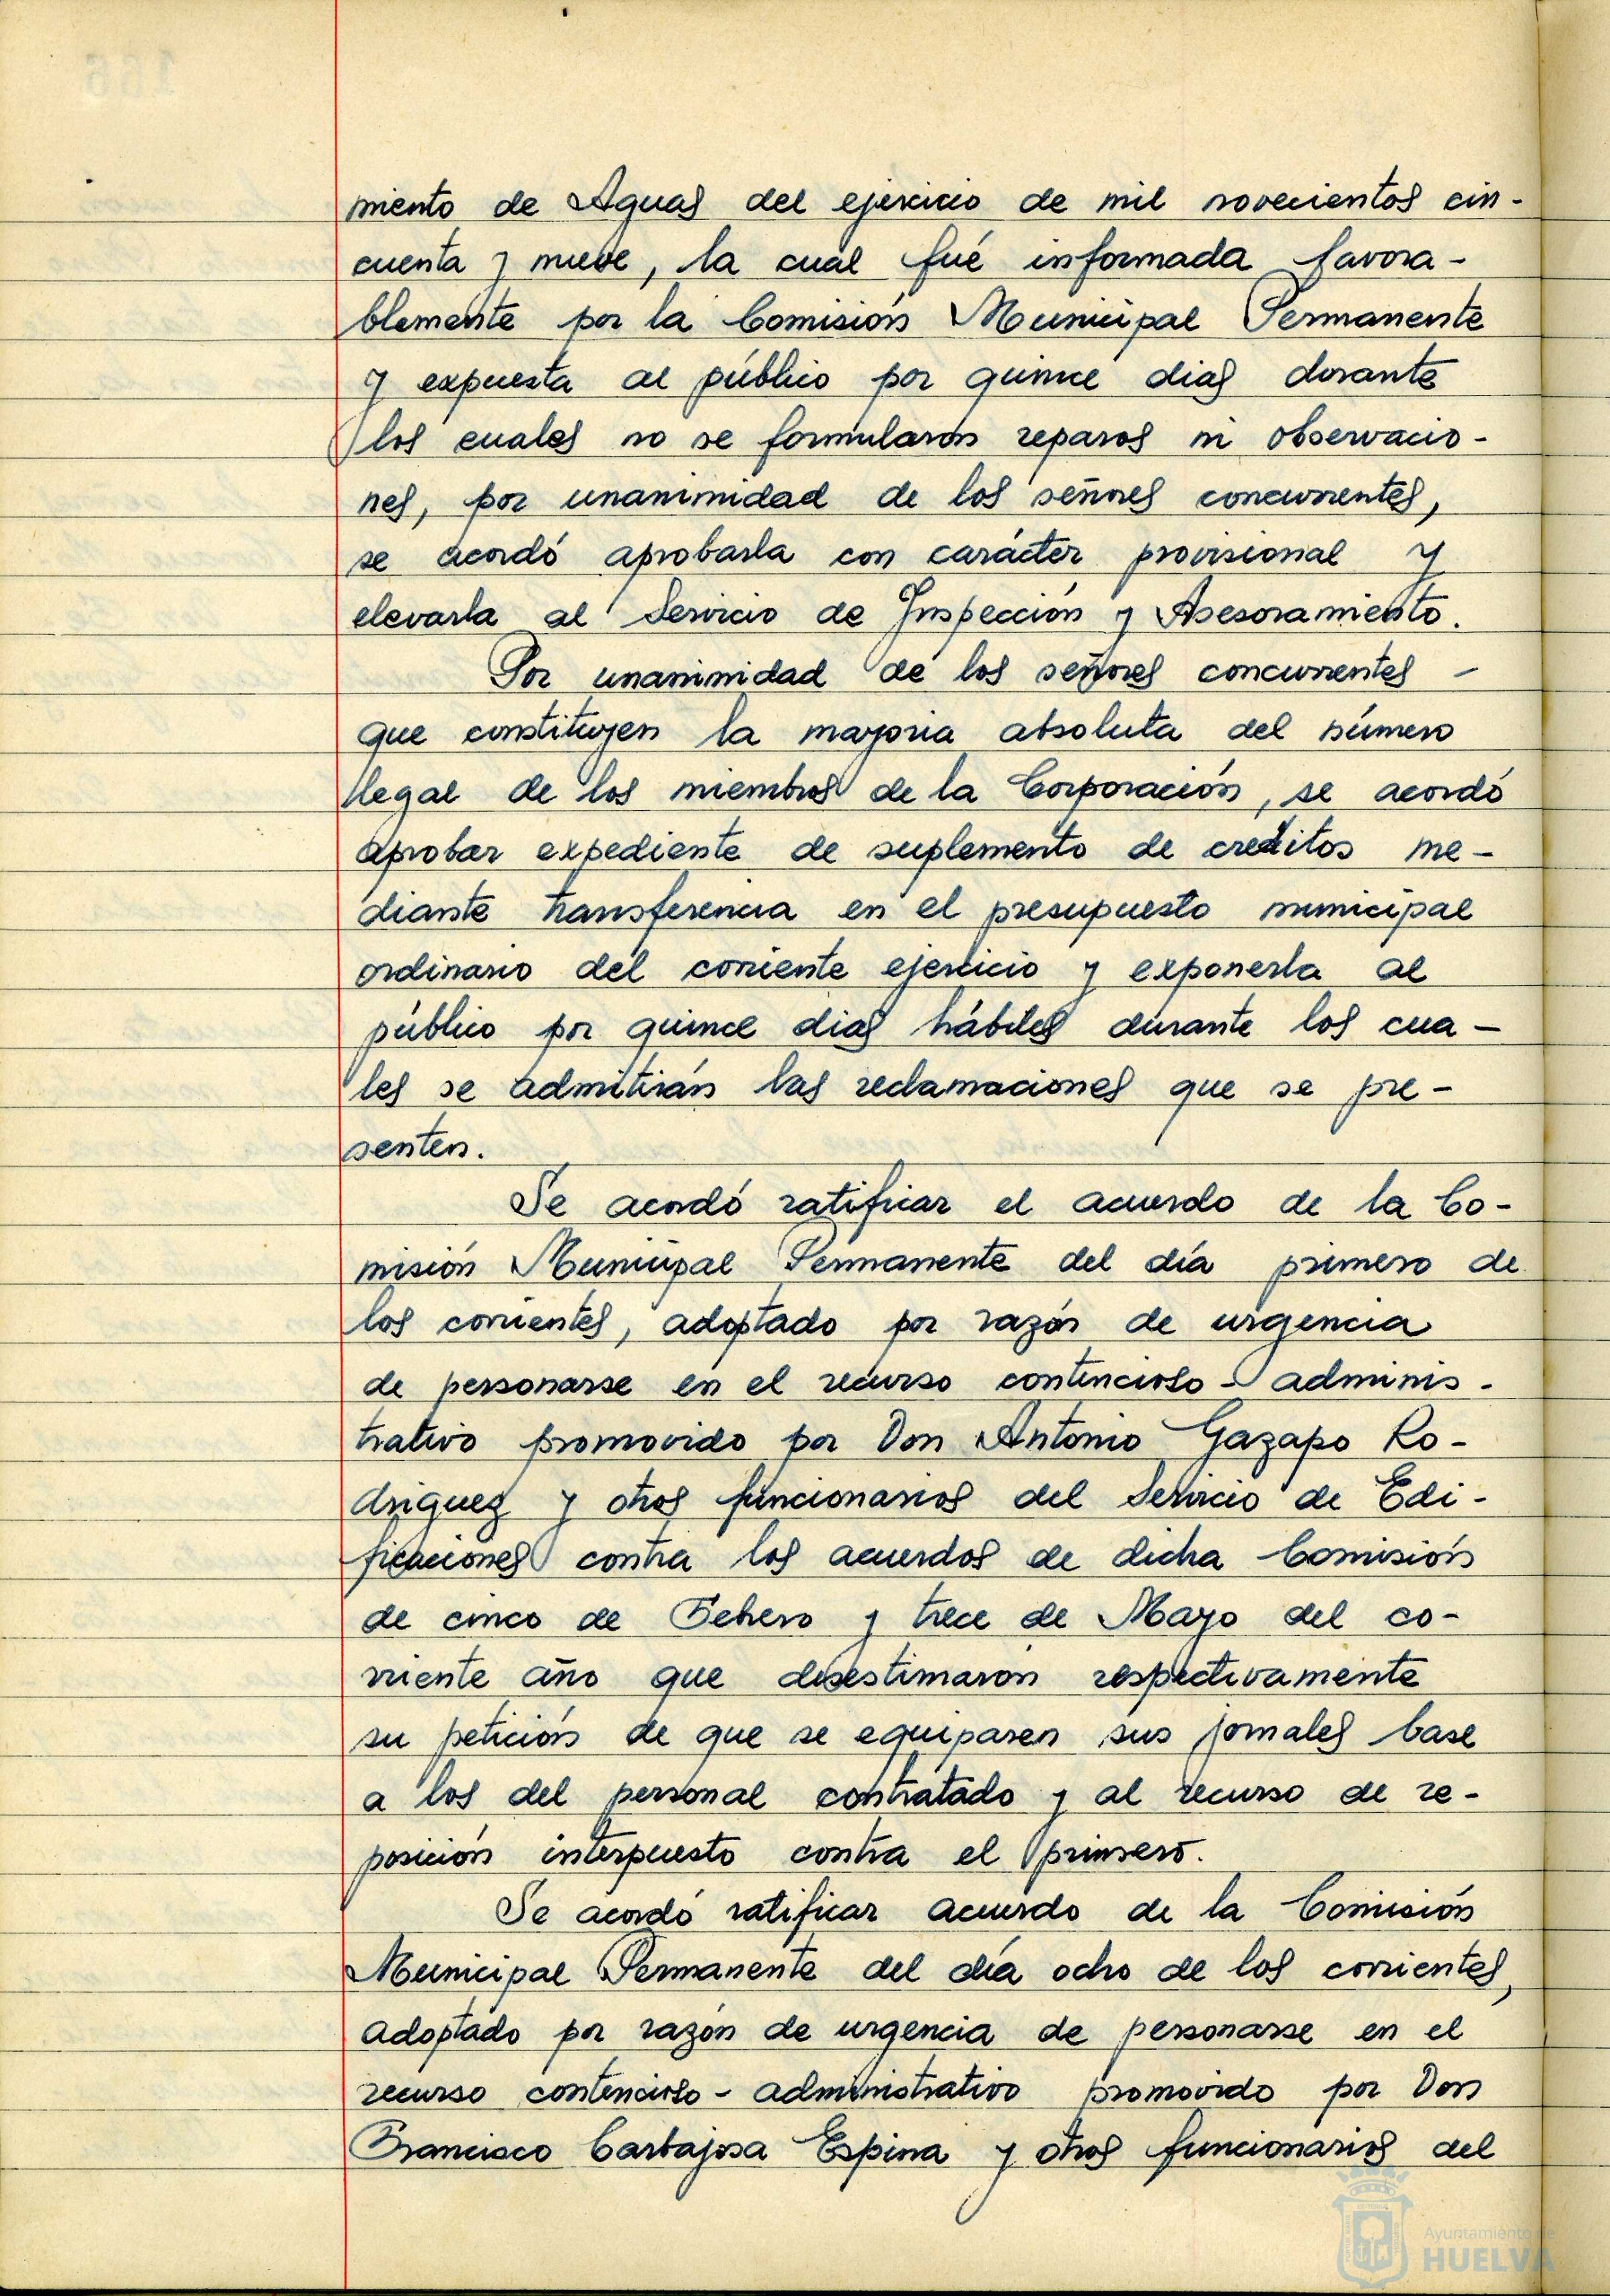 miento de Aguas del ejercicio de mil novecientos cin-
cuenta y nueve, la cual fué informada favora-
blemente por la Comisión Municipal Permanente
y expuesta al público por quince dias durante
los cuales no se formularon reparos ni observacio-
nes, por unanimidad de los señores concurrentes,
se acordó aprobarla con carácter provisional y
elevarla al Servicio de Inspección y Asesoramiento.
Por unanimidad de los señores concurrentes -
que constituyen la mayoria absoluta del número
legal de los miembros de la Corporación, se acordó
aprobar expediente de suplemento de creditos me-
diante transferencia en el presupuesto municipal
ordinario del corriente ejercicio y exponerla al
público por quince dias hábiles durante los cua-
les se admitirán las reclamaciones que se pre-
senten.
Se acordó ratificar el acuerdo de la Co-
misión Municipal Permanente del día primero de
los corrientes, adoptado por razón de urgencia
de personarse en el recurso contencioso-adminis-
trativo promovido por Don Antonio Gazapo Ro-
driguez y otros funcionarios del Servicio de Edi-
ficaciones contra los acuerdos de dicha Comisión
de cinco de Febrero y trece de Mayo del co-
rriente año que desestimaron respectivamente
su petición de que se equiparen sus jornales base
a los del personal contratado y al recurso de re-
posición interpuesto contra el primero.
Se acordó ratificar acuerdo de la Comisión
Municipal Permanente del día ocho de los corrientes,
adoptado por razón de urgencia de personarse en el
recurso contencioso-administrativo promovido por Don
Francisco Carbajosa Espina y otros funcionarios del
Ayuntamiento de
HUELVA
166